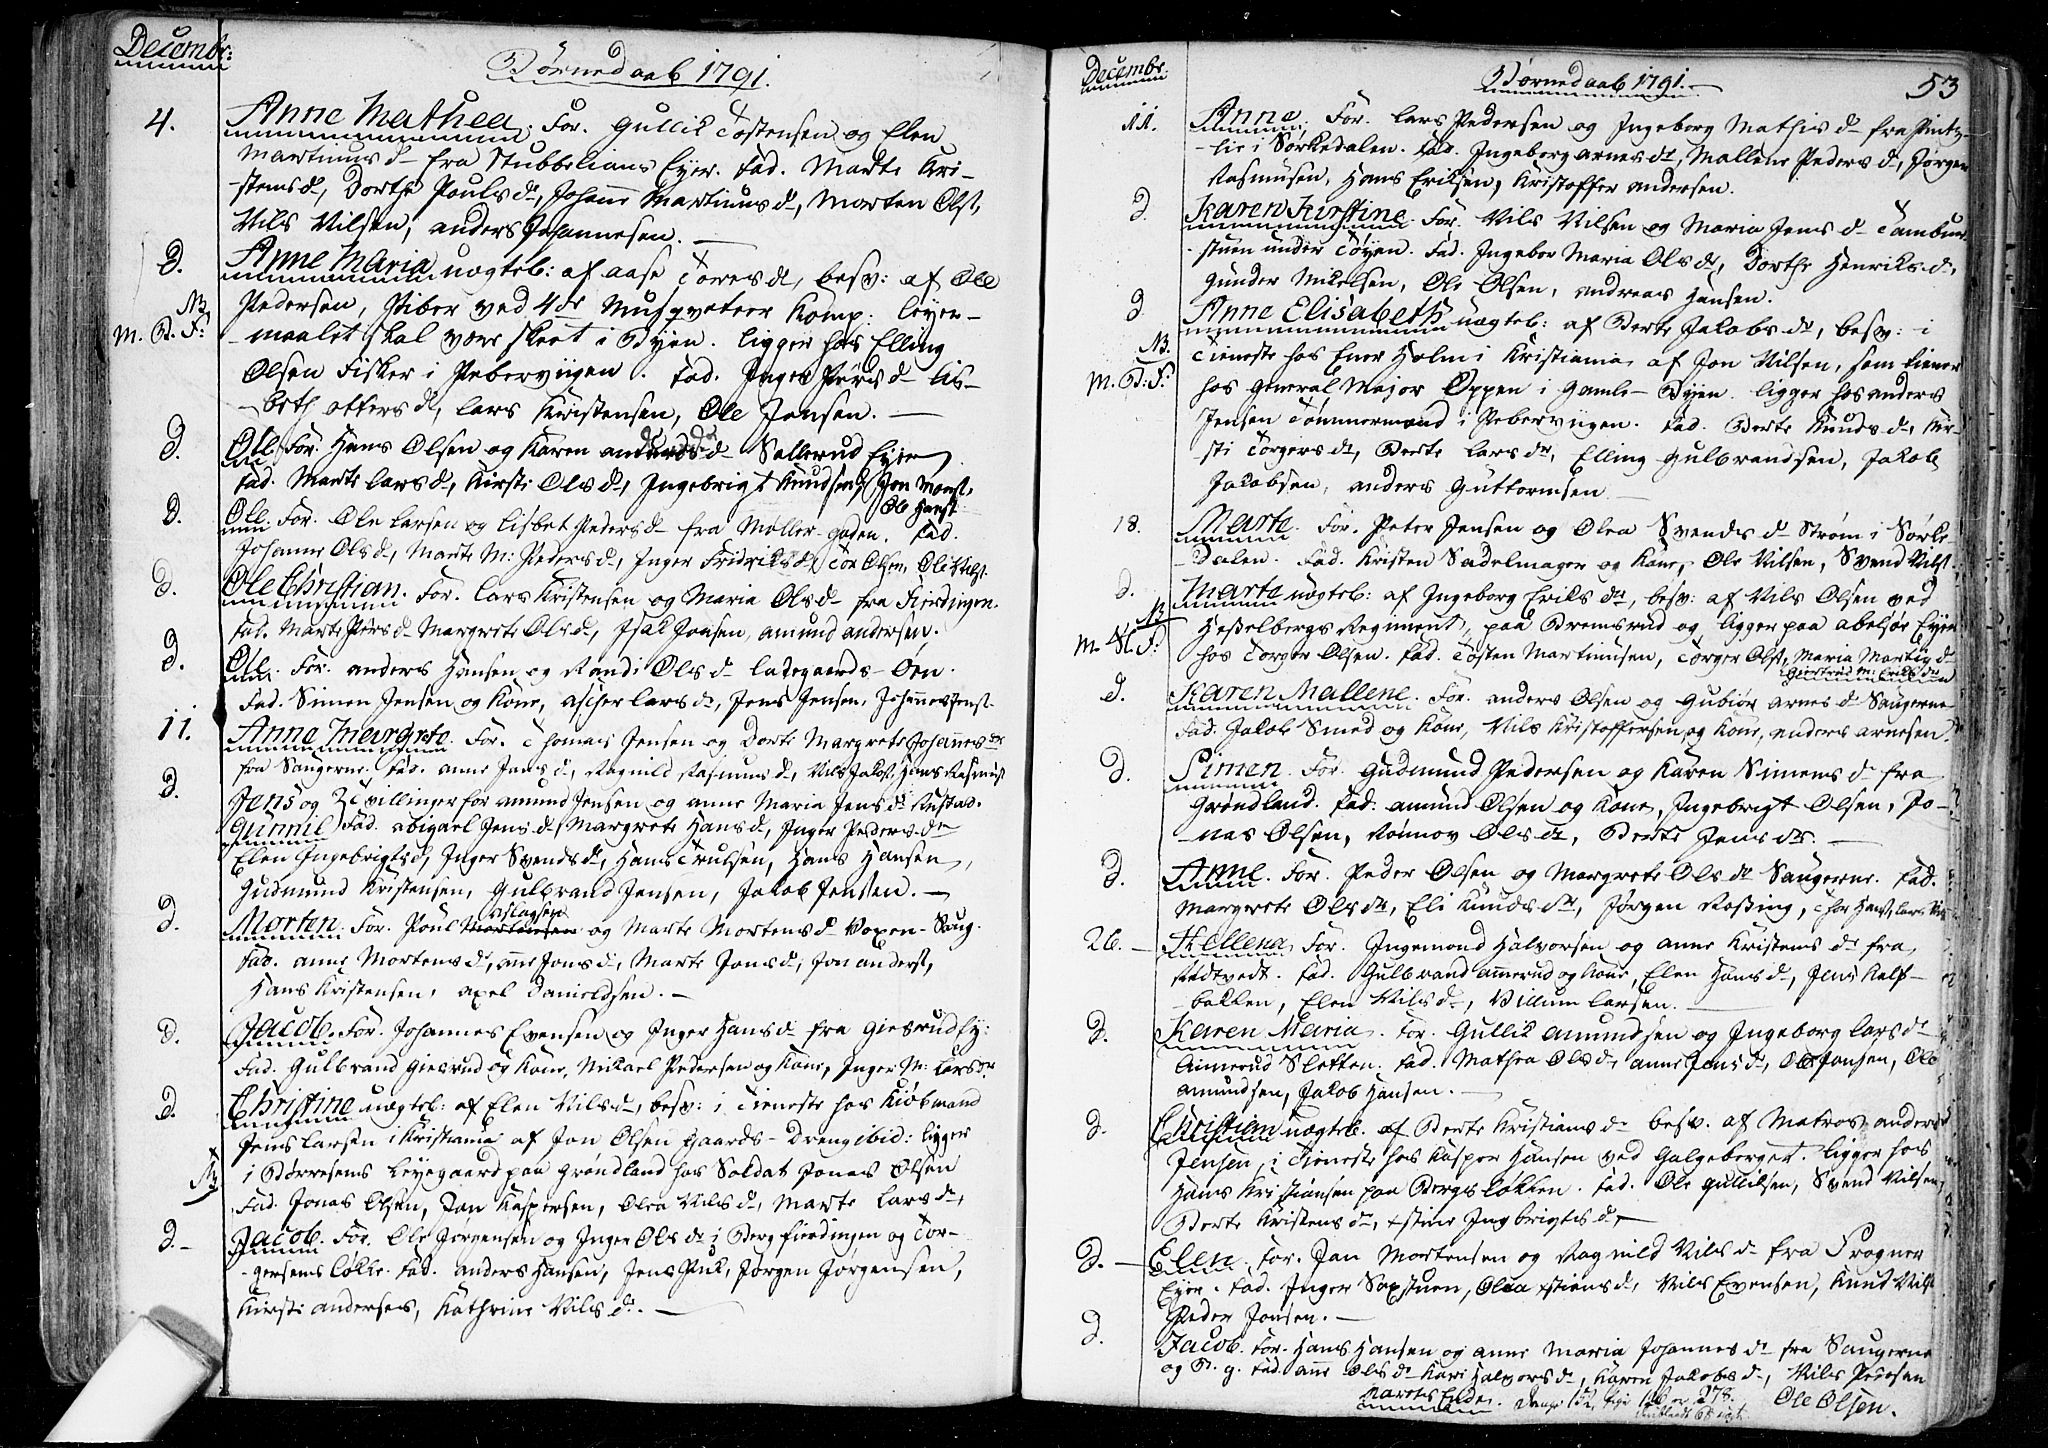 Decembr:
Børnedaab 1791.
4. Anne Mathea. For. Gullik Tostensen og Elen
Martinus d. fra Stubbelians Eyer. Fad. Marte Kri-
-stens d., Dorthe Pouls d., Johanne Martinus d., Morten Olss,
Nils Nilsen, anders Johannesen. —
D. Anne Maria uægteb: af aase Tores d., besv: af Ole
NB. Pedersen, Piber ved 4de Musqveteer Komp: Leyer-
M. B. F: -maalet skal være skeet i Byen. ligger hos Elling
Olsen Fisker i Peberviigen. Fad. Inger Pers d. Lis-
-beth otters d., Lars Kristensen, Ole Jonsen. —
D. Ole. For. Hans Olsen og Karen anders d. Sollerud Eyer
Fad. Marte Lars d., Kirsti Ols d., Ingebrigt Knudsen, Jon Monss,
Ole Hanss.
D. Ole. For. Ole Larsen og Lisbet Peders d. fra Møller-gaden. Fad.
Johanne Ols d., Marte M: Peders d., Inger Fridriks d., Tor Olsen,
D. Ole Christian. For. Lars Kristensen og Maria Ols d. fra Fierdingen.
Fad. Marte Pers d. Margrete Ols d., Isak Jonsen, amund andersen.
D. Ole. For. anders Hansen og Randi Ols d. Ladegaards-Øen.
Fad. Simen Jensen og Kone, Lars d., Jens Jensen, Johannes Jenss.
11. Anne Margrete. For. Thomas Jensen og Dorte Margrete Johannes dr
fra Saugerne. Fad. anne Jens d., Ragnild Rasmus d., Nils Jakobs, Hans Rasmuss
D. Jens og Tvillinger for amund Jensen og anne Maria Jens d. Rustad.
Gunnil Fad. abigael Jens d., Margrete Hans d., Inger Peders dr
Elen Ingebrigts d., Inger Svends d., Hans Trulsen, Hans Hansen,
Gudmund Kristensen, Gulbrand Jensen, Jakob Jensen. —
D. Morten. For. Poul Aslagsen og Marte Mortens d. Voxen-Saug.
Fad. anne Mortens d., anne Jons d., Marte Jons d., Jon anderss,
Hans Kristensen, axel Danieldsen. —
D. Jacob. For. Johannes Evensen og Inger Hans d. fra Giesrud Ey:
Fad. Gulbrand Giesrud og Kone, Mikael Pedersen og Kone, Inger M: Lars dr
D. Christine uægteb: af Elen Nils d., besv: i Tieneste hos Kiøbmand
Jens Larsen i Kristiania af Jon Olsen Gaards-Dreng ibid: ligger
NB i Børresens Leyegaard paa Grøndland hos Soldat Jonas Olsen
Fad. Jonas Olsen, Jan Kaspersen, Olea Nils d., Marte Lars d.,
D. — Jacob. For. Ole Jørgensen og Inger Ols d. i Bergfierdingen og Tor-
-gersens Løkke. Fad. anders Hansen, Jens Juk, Jørgen Jørgensen,
Kirsti anderses, Kathrine Nils d. —
Decembr.
Børnedaab 1791. —
53
11. Anne. For. Lars Pedersen og Ingeborg Mathis d. fra Pintz-
-lie i Sørkedalen. Fad. Ingeborg arnes d., Mallene Peders d., Jørgen
Rasmusen, Hans Eriksen, Kristoffer andersen.
D. Karen Kirstine. For. Nils Nilsen og Maria Jens d. Tambur-
-stuen under Tøyen. Fad. Ingebor Maria Ols d., Dorthe Henriks d.,
Gunder Mikelsen, Ole Olsen, andreas Hansen.
D. Anne Elisabeth uægteb: af Berte Jakobs dr, besv: i
NB. Tieneste hos Ener Holm i Kristiania af Jon Nilsen, som tiener
M. B: F: hos General Major Oppen i Gamle-Byen. ligger hos anders
Jensen Tømmermand i Peberviigen. Fad. Berte Knuds d., Kir-
sti Torgers d., Berte Lars dr, Elling Gulbrandsen, Jakob
Jakobsen, anders Guttormsen. —
18. Marte. For. Peter Jensen og Olea Svends d. Strøm i Sørke-
-dalen. Fad. Kristen Sadelmager og Kone, Ole Nilsen, Svend Nilss
D. Marte uægteb: af Ingeborg Eriks dr, besv: af Nils Olsen ved
NB Hesselbergs Regiment, paa Bremsrud og ligger paa abelsøe Eyer
M. N. F: hos Torger Olsen. Fad. Tosten Martinusen, Torger Olss, Maria Martin d.
Giertrud M: Eriks dr
D. Karen Mallene. For. anders Olsen og Gubiør arnes d. Saugerne
Fad. Jakob Smed og Kone, Nils Kristoffersen og Kone, anders arnesen.
D. Simen. For. Gudmund Pedersen og Karen Simens d. fra
Grøndland. Fad. amund Olsen og Kone, Ingebrigt Olsen, Jo-
-nas Olsen, Rønnov Ols dr, Berte Jens dr. —
D. Anne. For. Peder Olsen og Margrete Ols d. Saugerne. Fad.
Margrete Ols dr, Eli Knuds dr, Jørgen Rossing, Thor Hanss, Lars
26. — Hellena. For. Ingemond Halvorsen og anne Kristens d. fra
Rødtvedt. Fad. Gulbrand ammerud og Kone, Elen Hans d., Jens Kalf-
-bakken, Elen Nils d., Villum Larsen. —
D. Karen Maria. For. Gullik amundsen og Ingeborg Lars d.
Aimerud Sletten. Fad. Mathea Ols d., anne Jens d., Ole Jansen, Ole
amundsen, Jakob Hansen. —
D. Christian uægteb. af Berte Kristians d. besv. af Matros anders
Jensen, i Tieneste hos Kasper Hansen ved Galgeberget. ligger hos
Hans Kristiansen paa Bergsløkken. Fad. Ole Gullilsen, Svend Nilsen,
Berte Kristens dr, xstine Ingbrigts d. —
D. — Elen. For. Jan Mortensen og Ragnild Nils d. fra Frogner
Eyer. Fad. Inger Saxstuen, Olea xstians d., Nils Evensen, Knud Nilss
Peder Jonsen. —
D. Jacob. For. Hans Hansen og anne Maria Johannes d. fra Saugerne
og B. g. Fad. anne Ols d. Kari Halvors d., Karen Jakobs d., Nils Pedersen
Aarets Ende. Drenge 152, Pige 126 er 278. Ole Olsen.